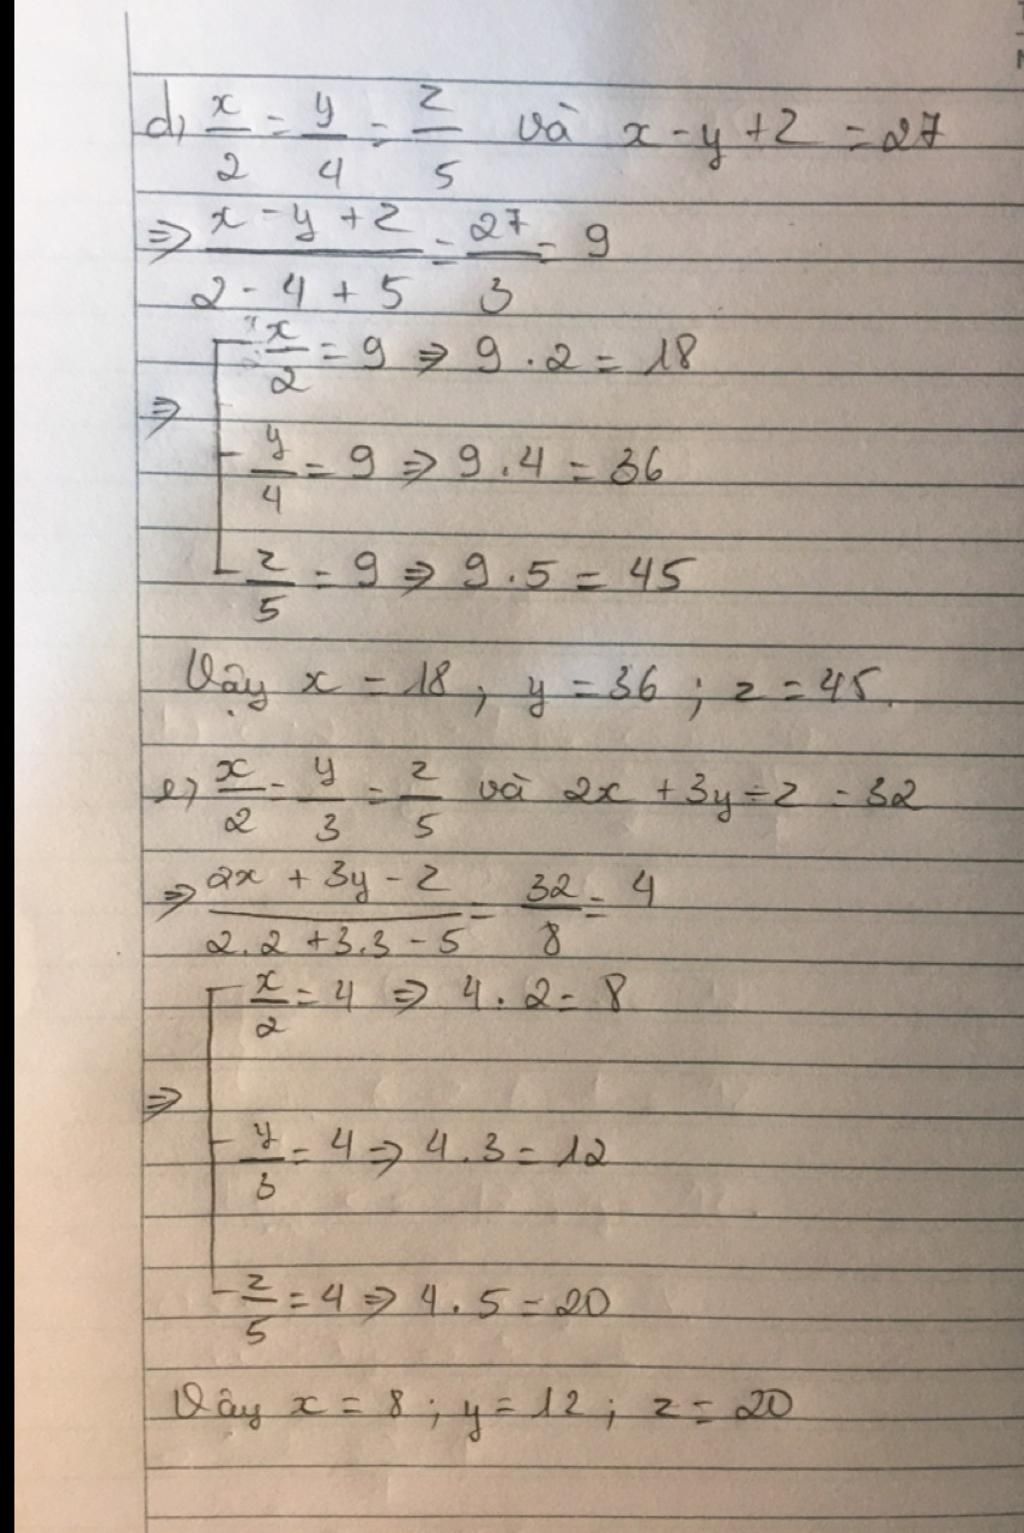 d, x/2 = y/4 = z/5 và x - y + z = 27
⇒ (x - y + z)/(2 - 4 + 5) = 27/3 = 9
x/2 = 9 ⇒ 9 . 2 = 18
⇒
y/4 = 9 ⇒ 9 . 4 = 36
z/5 = 9 ⇒ 9 . 5 = 45
Vậy x = 18 ; y = 36 ; z = 45.
e, x/2 = y/3 = z/5 và 2x + 3y - z = 32
⇒ (2x + 3y - z)/(2.2 + 3.3 - 5) = 32/8 = 4
x/2 = 4 ⇒ 4 . 2 = 8
⇒
y/3 = 4 ⇒ 4 . 3 = 12
z/5 = 4 ⇒ 4 . 5 = 20
Vây x = 8 ; y = 12 ; z = 20